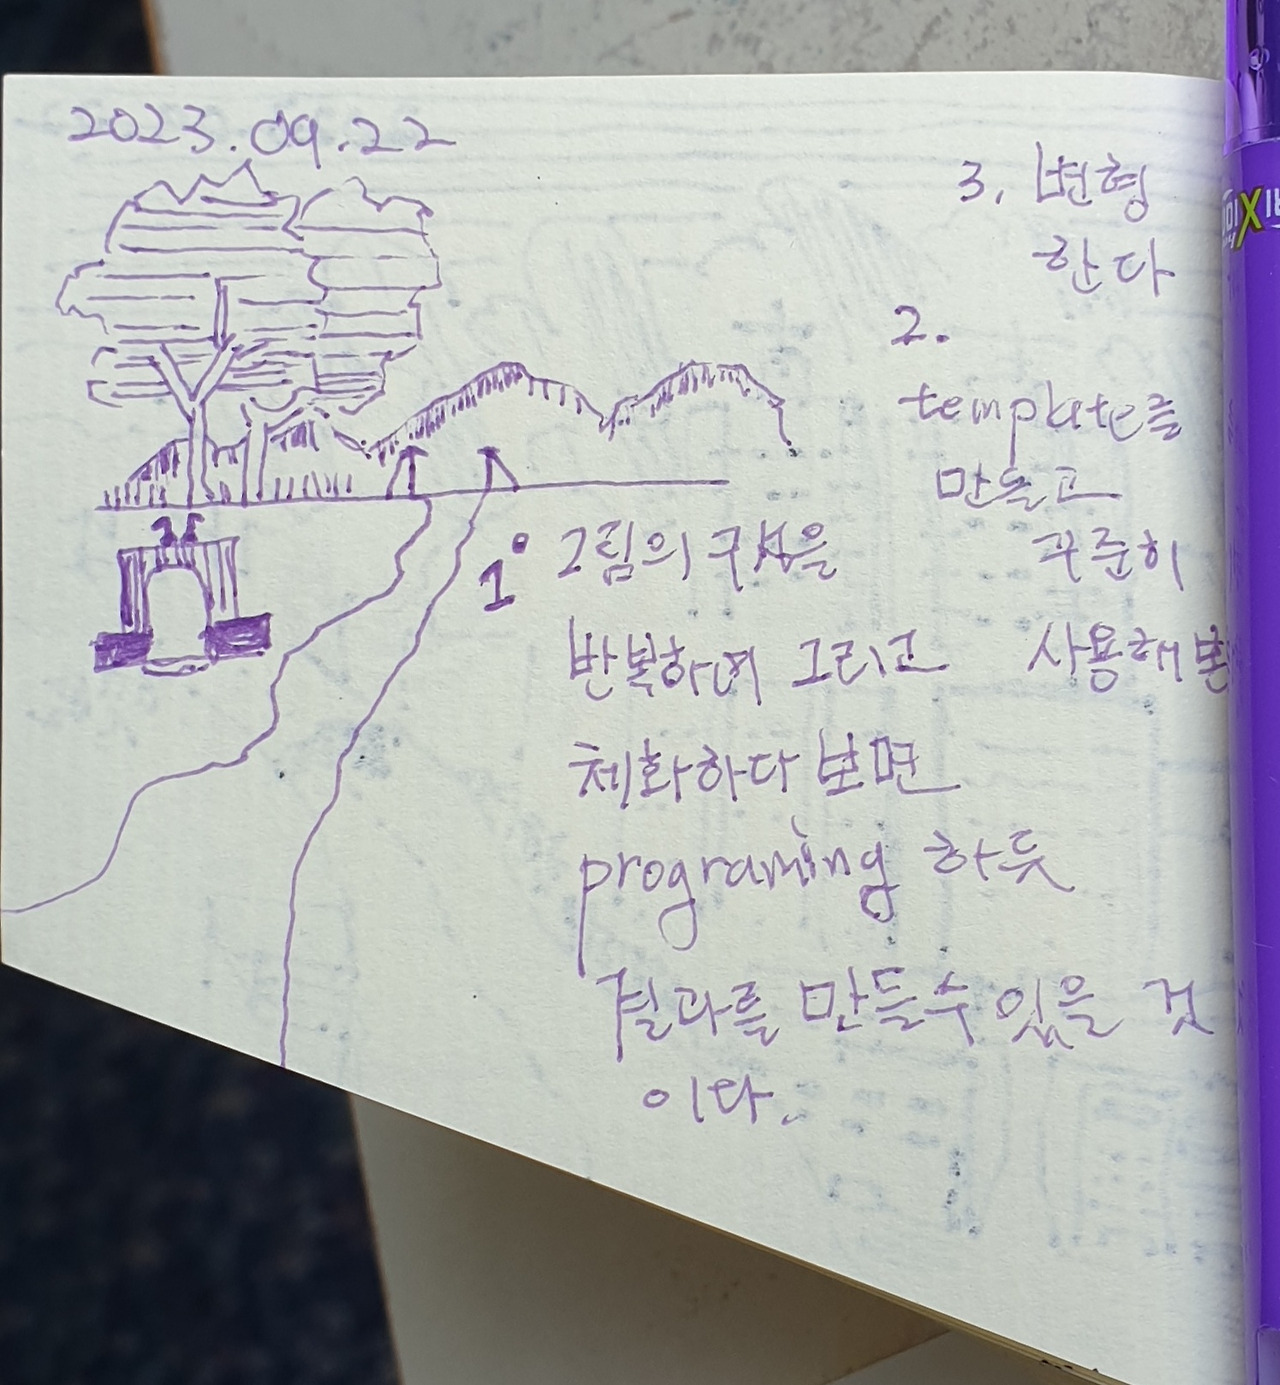 2023.09.22
3. 변형
한다
2.
template를
만들고
꾸준히
사용해본
1° 그림의 구성을
반복하며 그리고
체화하다 보면
programing 하듯
결과를 만들수 있을 것
이다.